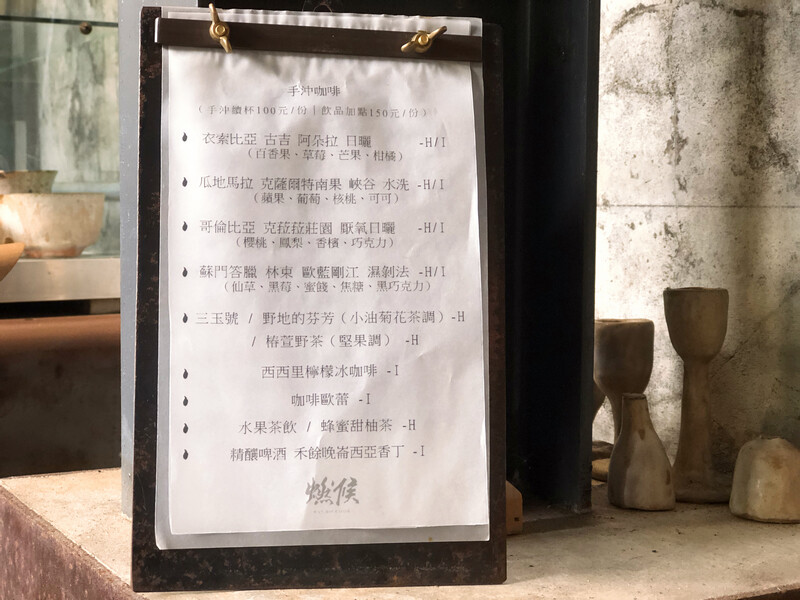 手沖咖啡
(手沖續杯100元/份｜飲品加點150元/份)
衣索比亞 古吉 阿朵拉 日曬 -H/I
(百香果、草莓、芒果、柑橘)
瓜地馬拉 克薩爾特南果 峽谷 水洗 -H/I
(蘋果、葡萄、核桃、可可)
哥倫比亞 克菈菈莊園 厭氧日曬 -H/I
(櫻桃、鳳梨、香檳、巧克力)
蘇門答臘 林東 歐藍剛江 濕剝法 -H/I
(仙草、黑莓、蜜餞、焦糖、黑巧克力)
三玉號 / 野地的芬芳（小油菊花茶調）-H
/ 椿萱野茶（堅果調） -H
西西里檸檬冰咖啡 -I
咖啡歐蕾 -I
水果茶飲 / 蜂蜜甜柚茶 -H
精釀啤酒 禾餘晚崙西亞香丁 -I
燃候